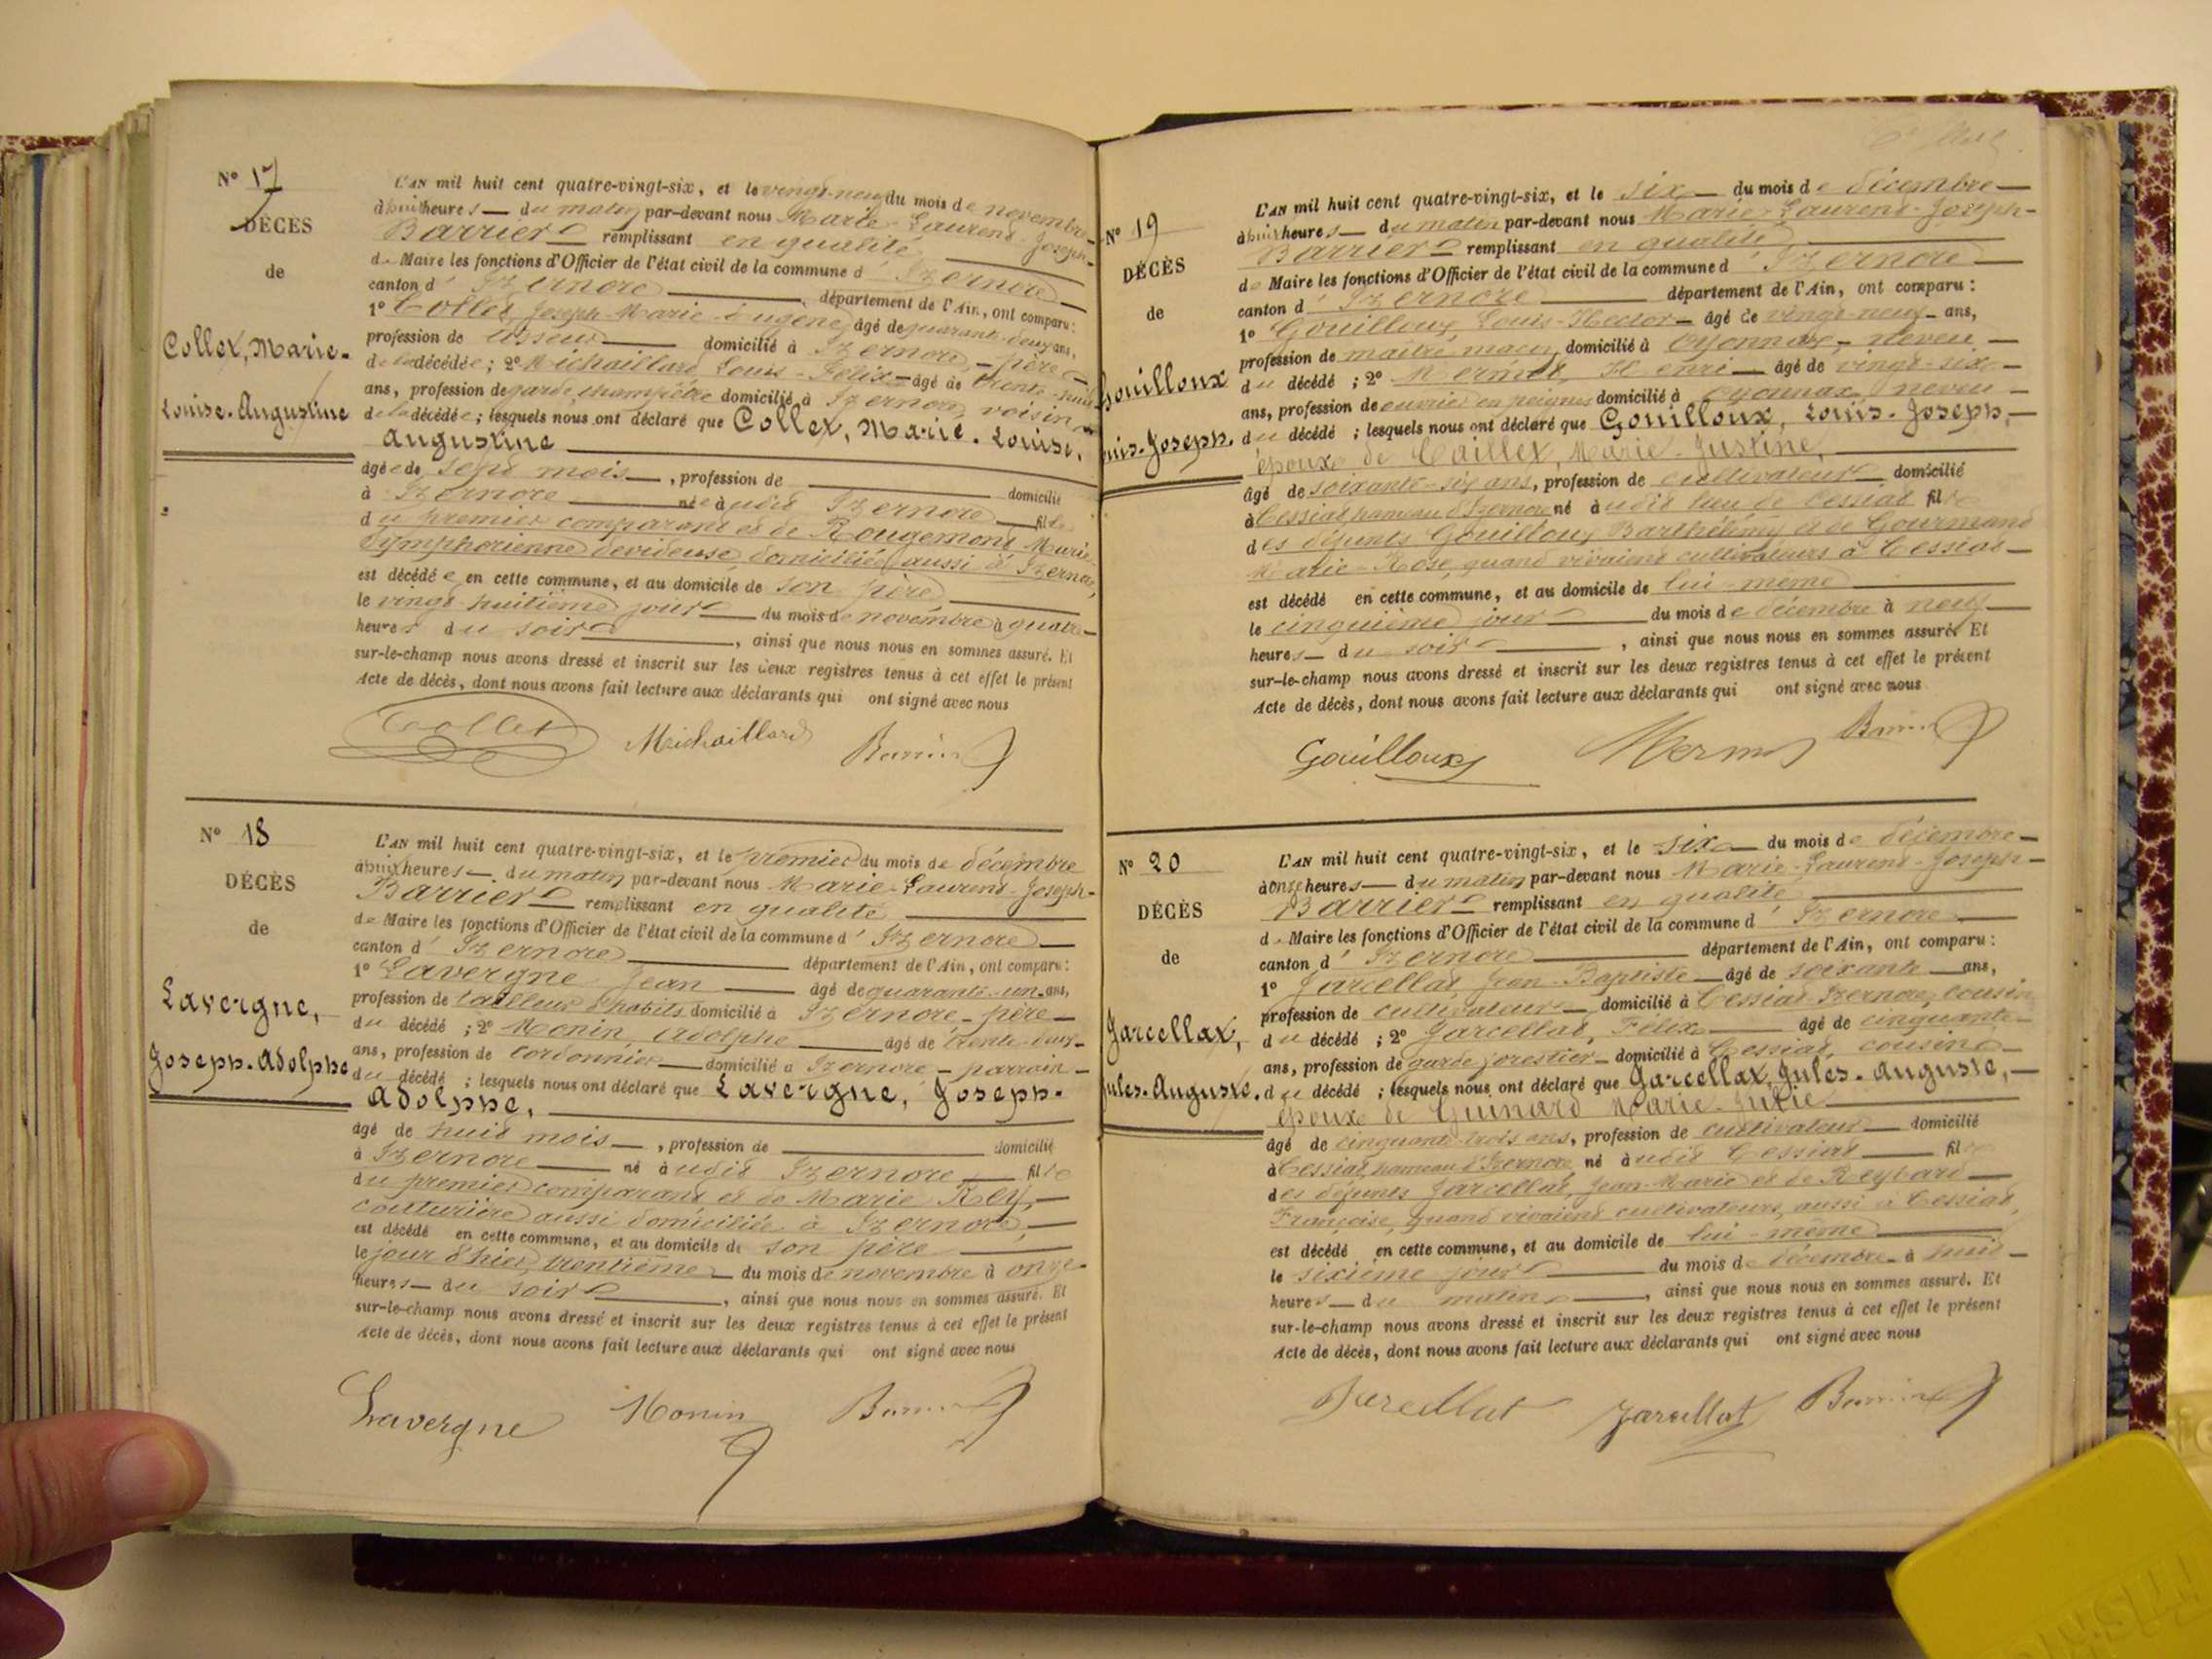 N° 17
DÉCÈS
de
Collet, Marie-
Louise-Augustine
L'AN mil huit cent quatre-vingt-six, et le vingt-neuf du mois de novembre
à huit heures du matin par-devant nous Marie-Laurent-Joseph-
Barrier remplissant en qualité
de Maire les fonctions d'Officier de l'état civil de la commune d'Izernore
canton d'Izernore, département de l'Ain, ont comparu:
1° Collet, Joseph-Marie-Eugène, âgé de quarante-deux ans,
profession de tisseur domicilié à Izernore, - père
de la décédée; 2° Michaillard Louis-Félix - âgé de trente-huit
ans, profession de garde champêtre domicilié à Izernore, voisin
de la décédée; lesquels nous ont déclaré que Collet, Marie-Louise,
Augustine
âgée de sept mois, profession de domicilié
à Izernore née audit Izernore fille
du premier comparant et de Rougemont Marie-
Symphorienne dévideuse, domiciliée aussi à Izernore,
est décédée en cette commune, et au domicile de son père
le vingt-huitième jour du mois de novembre à quatre
heures du soir, ainsi que nous nous en sommes assuré. Et
sur-le-champ nous avons dressé et inscrit sur les deux registres tenus à cet effet le présent
Acte de décès, dont nous avons fait lecture aux déclarants qui ont signé avec nous
Collet Michaillard Barrier
N° 18
DÉCÈS
de
Lavergne,
Joseph-Adolphe
L'AN mil huit cent quatre-vingt-six, et le premier du mois de décembre
à huit heures du matin par-devant nous Marie-Laurent-Joseph-
Barrier remplissant en qualité
de Maire les fonctions d'Officier de l'état civil de la commune d'Izernore
canton d'Izernore département de l'Ain, ont comparu:
1° Lavergne Jean âgé de quarante-un ans,
profession de tailleur d'habits domicilié à Izernore - père
du décédé; 2° Monin, Adolphe âgé de trente-deux
ans, profession de cordonnier domicilié à Izernore - parrain -
du décédé; lesquels nous ont déclaré que Lavergne, Joseph-
Adolphe,
âgé de huit mois, profession de domicilié
à Izernore né audit Izernore fils
du premier comparant et de Marie Rey,
couturière aussi domiciliée à Izernore,
est décédé en cette commune, et au domicile de son père
le jour d'hier, trentième du mois de novembre à onze
heures du soir, ainsi que nous nous en sommes assuré. Et
sur-le-champ nous avons dressé et inscrit sur les deux registres tenus à cet effet le présent
Acte de décès, dont nous avons fait lecture aux déclarants qui ont signé avec nous
Lavergne Monin Barrier
N° 19
DÉCÈS
de
Gouilloux
uis-Joseph.
L'AN mil huit cent quatre-vingt-six, et le six du mois de décembre
à huit heures du matin par-devant nous Marie-Laurent-Joseph-
Barrier remplissant en qualité
de Maire les fonctions d'Officier de l'état civil de la commune d'Izernore
canton d'Izernore département de l'Ain, ont comparu:
1° Gouilloux, Louis-Hector - âgé de vingt-neuf ans,
profession de maître maçon domicilié à Oyonnax, - neveu
du décédé; 2° Mermet, Henri âgé de vingt-six
ans, profession de ouvrier en peignes domicilié à Oyonnax, neveu
du décédé; lesquels nous ont déclaré que Gouilloux, Louis-Joseph,
époux de Caillet, Marie-Justine,
âgé de soixante-six ans, profession de cultivateur domicilié
à Cessiat hameau d'Izernore né audit lieu de Cessiat fils
des défunts Gouilloux Barthélemy et de Gourmand
Marie-Rose, quand vivaient cultivateurs à Cessiat
est décédé en cette commune, et au domicile de lui-même
le cinquième jour du mois de décembre à neuf
heures du soir, ainsi que nous nous en sommes assuré. Et
sur-le-champ nous avons dressé et inscrit sur les deux registres tenus à cet effet le présent
Acte de décès, dont nous avons fait lecture aux déclarants qui ont signé avec nous
Gouilloux Mermet Barrier
N° 20
DÉCÈS
de
Jarcellat,
Jules-Auguste.
L'AN mil huit cent quatre-vingt-six, et le six du mois de décembre
à onze heures du matin par-devant nous Marie-Laurent-Joseph-
Barrier remplissant en qualité
de Maire les fonctions d'Officier de l'état civil de la commune d'Izernore
canton d'Izernore département de l'Ain, ont comparu:
1° Jarcellat Jean-Baptiste âgé de soixante ans,
profession de cultivateur domicilié à Cessiat Izernore, cousin
du décédé; 2° Jarcellat, Félix âgé de cinquante
ans, profession de garde forestier domicilié à Cessiat, cousin
du décédé; lesquels nous ont déclaré que Jarcellat, Jules-Auguste,
époux de Guinard Marie-Julie
âgé de cinquante-trois ans, profession de cultivateur domicilié
à Cessiat, hameau d'Izernore, né audit Cessiat fils
des défunts Jarcellat, Jean-Marie et de Reybard
Françoise, quand vivaient cultivateurs, aussi à Cessiat,
est décédé en cette commune, et au domicile de lui-même
le sixième jour du mois de décembre à huit
heures du matin, ainsi que nous nous en sommes assuré. Et
sur-le-champ nous avons dressé et inscrit sur les deux registres tenus à cet effet le présent
Acte de décès, dont nous avons fait lecture aux déclarants qui ont signé avec nous
Jarcellat Jarcellat Barrier